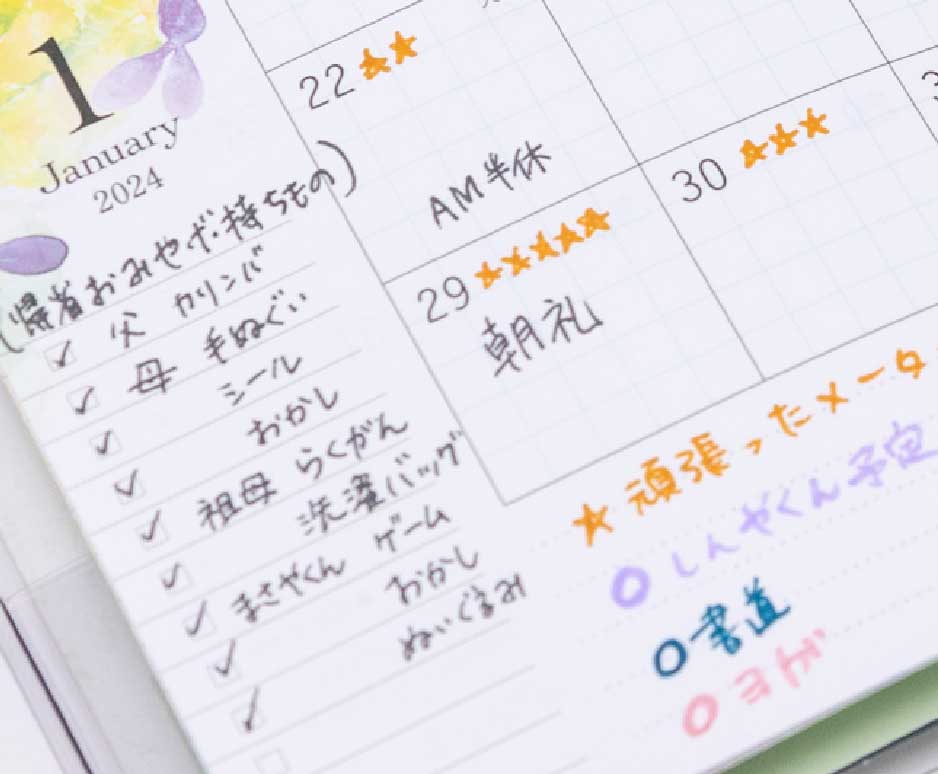 1
January
2024
(帰省おみやげ・持ちもの)
✓ 父 カリンバ
✓ 母 手ぬぐい
✓ シール
✓ おかし
✓ 祖母 らくがん
✓ 洗濯バッグ
✓ まさやくん ゲーム
✓ おかし
✓ ぬいぐるみ
22 ★★
AM半休
29 ★★★★★
朝礼
30 ★★★
★頑張ったメータ
○しんやくん予定
○書道
○ヨガ